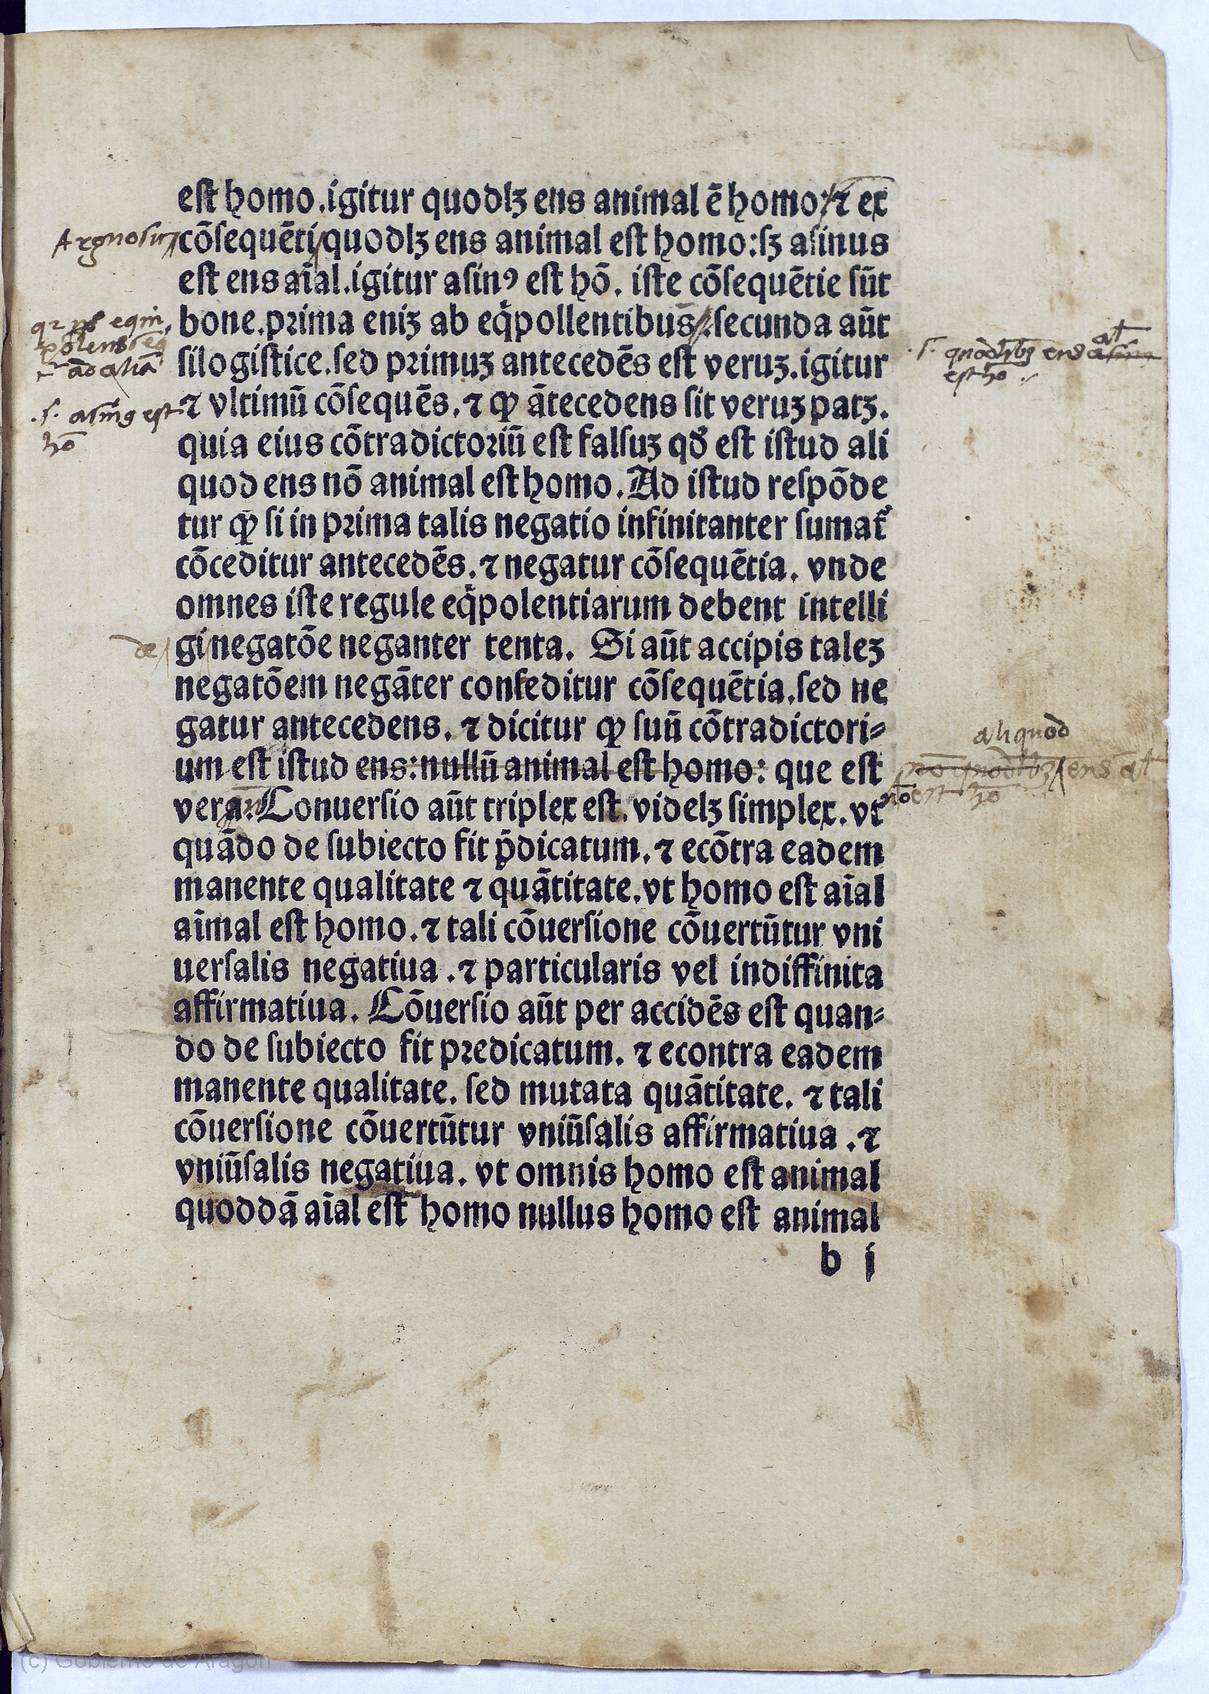 est homo.igitur quodlꝫ ens animal ē homo:⁊ ex
cōsequēti quodlꝫ ens animal est homo:sꝫ asinus
est ens aīal.igitur asinꝰ est hō. iste cōsequētie sūt
bone.prima eniꝫ ab eq̇pollentibus.secunda aūt
silogistice.sed primuꝫ antecedēs est veruꝫ.igitur
⁊ vltimū cōsequēs.⁊ ꝙ ātecedens sit veruꝫ patꝫ.
quia eius cōtradictoriū est falsuꝫ qđ est istud ali
quod ens nō animal est homo.Ad istud respōde
tur ꝙ si in prima talis negatio infinitanter sumat᷑
cōceditur antecedēs.⁊ negatur cōsequētia. vnde
omnes iste regule eq̇polentiarum debent intelli
gi negatōe neganter tenta. Si aūt accipis taleꝫ
negatōem negāter conſeditur cōsequētia.sed ne
gatur antecedens. ⁊ dicitur ꝙ suū cōtradictori⸗
um est istud ens:nullū animal est homo: que est
vera. Conuersio aūt triplex est.videlꝫ simplex.vt
quādo de subiecto fit p̄dicatum.⁊ ecōtra eadem
manente qualitate ⁊ quātitate.vt homo est aīal
aīmal est homo.⁊ tali cōuersione cōuertūtur vni
uersalis negatiua.⁊ particularis vel indiffinita
affirmatiua. Cōuersio aūt per accidēs est quan⸗
do de subiecto fit predicatum. ⁊ econtra eadem
manente qualitate. sed mutata quātitate. ⁊ tali
cōuersione cōuertūtur vniūsalis affirmatiua .⁊
vniūsalis negatiua. vt omnis homo est animal
quoddā aīal est homo nullus homo est animal
b j
.s. asinꝰ est
hō
de
est hō
aliquod
ens at
est hō
(c) Gobierno de Aragón